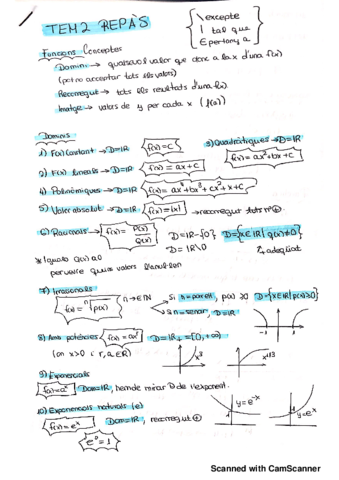 TEM2 REPÀS
{ \ excepte
| tal que
∈ pertany a }
Funcions Conceptes
Domini → qualsevol valor que dono a la x d'una f(x)
(pot no acceptar tots els valors)
Recorregut → tots els resultats d'una f(x)
Imatge → valors de y per cada x (f(x))
Dominis
1) F(x) Constant → D=IR f(x)=C
3) Quadràtiques → D=IR
f(x)=ax²+bx+c
2) F(x) Lineals → D=IR f(x)=ax+c
4) Polinòmiques → D=IR f(x)=ax⁴+bx³+cx²+x+c
5) Valor absolut → D=IR f(x)=|x| → recorregut tots nº ⊕
6) Racionals → f(x)= P(x)/Q(x) D=IR-{0} D={x∈IR | q(x)≠0}
D=IR\0 adequat
* Iguato Q(x) a 0
per veure quins valors l'anul·len
7) Irracionals
f(x)=ⁿ√p(x) n→∈IN Si n=parell, p(x)≥0 D={x∈IR | p(x)≥0}
Si n=senar D=IR
-1 1
8) Amb potències f(x)=axʳ D=IR+=[0,+∞)
(on x>0 i r,a∈IR)
x³ x^1/3
9) Exponencials
f(x)=aˣ Dom=IR, hem de mirar D de l'exponent.
10) Exponencials naturals (e)
f(x)=eˣ Dom=IR, recorregut ⊕
e⁰=1
y=e⁻ˣ
y=eˣ
1
Scanned with CamScanner